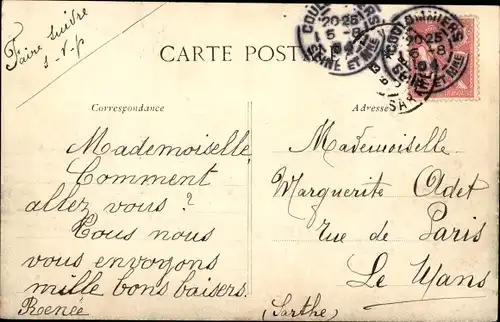 Faire suivre
s-v-p
CARTE POST
COULOMMIERS
20-25
5-8
SEINE ET MNE
COULOMMIERS
20-25
5-8
SEINE ET MNE
SAR
Correspondance
Adresse
Mademoiselle
Comment
allez vous ?
Tous nous
vous envoyons
mille bons baisers.
Renée
Mademoiselle
Marguerite Odet
rue de Paris
Le Mans
(Sarthe)